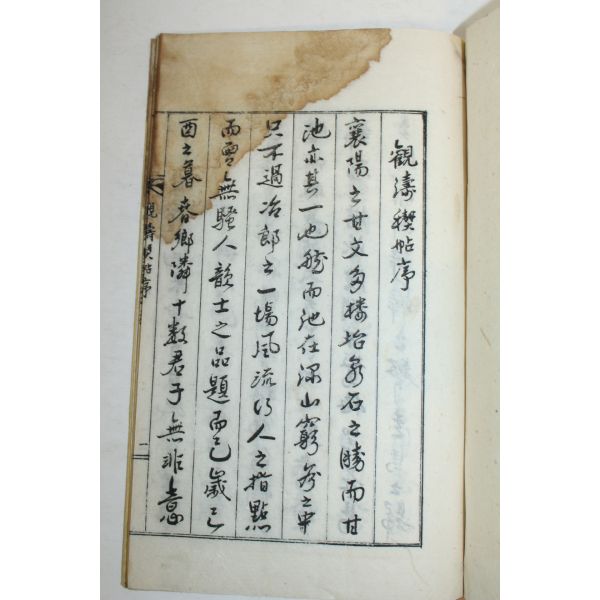 觀濤稧帖序
襄陽之甘文多樓坮泉石之勝而甘
池亦其一也然而池在深山窮谷之中
只不過冶郎之一場風流行人之指點
而曾無騷人韻士之品題而已歲乙
酉之暮春鄉隣十數君子無非意
觀濤稧帖序
一